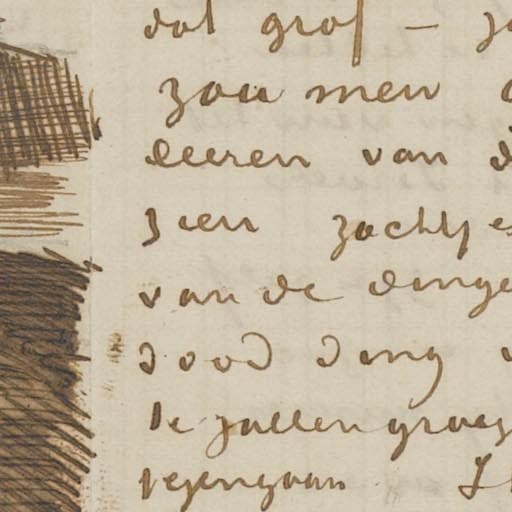 dat grof –
zou men
leeren van d
zien zachtjes
van de dinge
dood ding
ze zullen graag
tegengaan. I